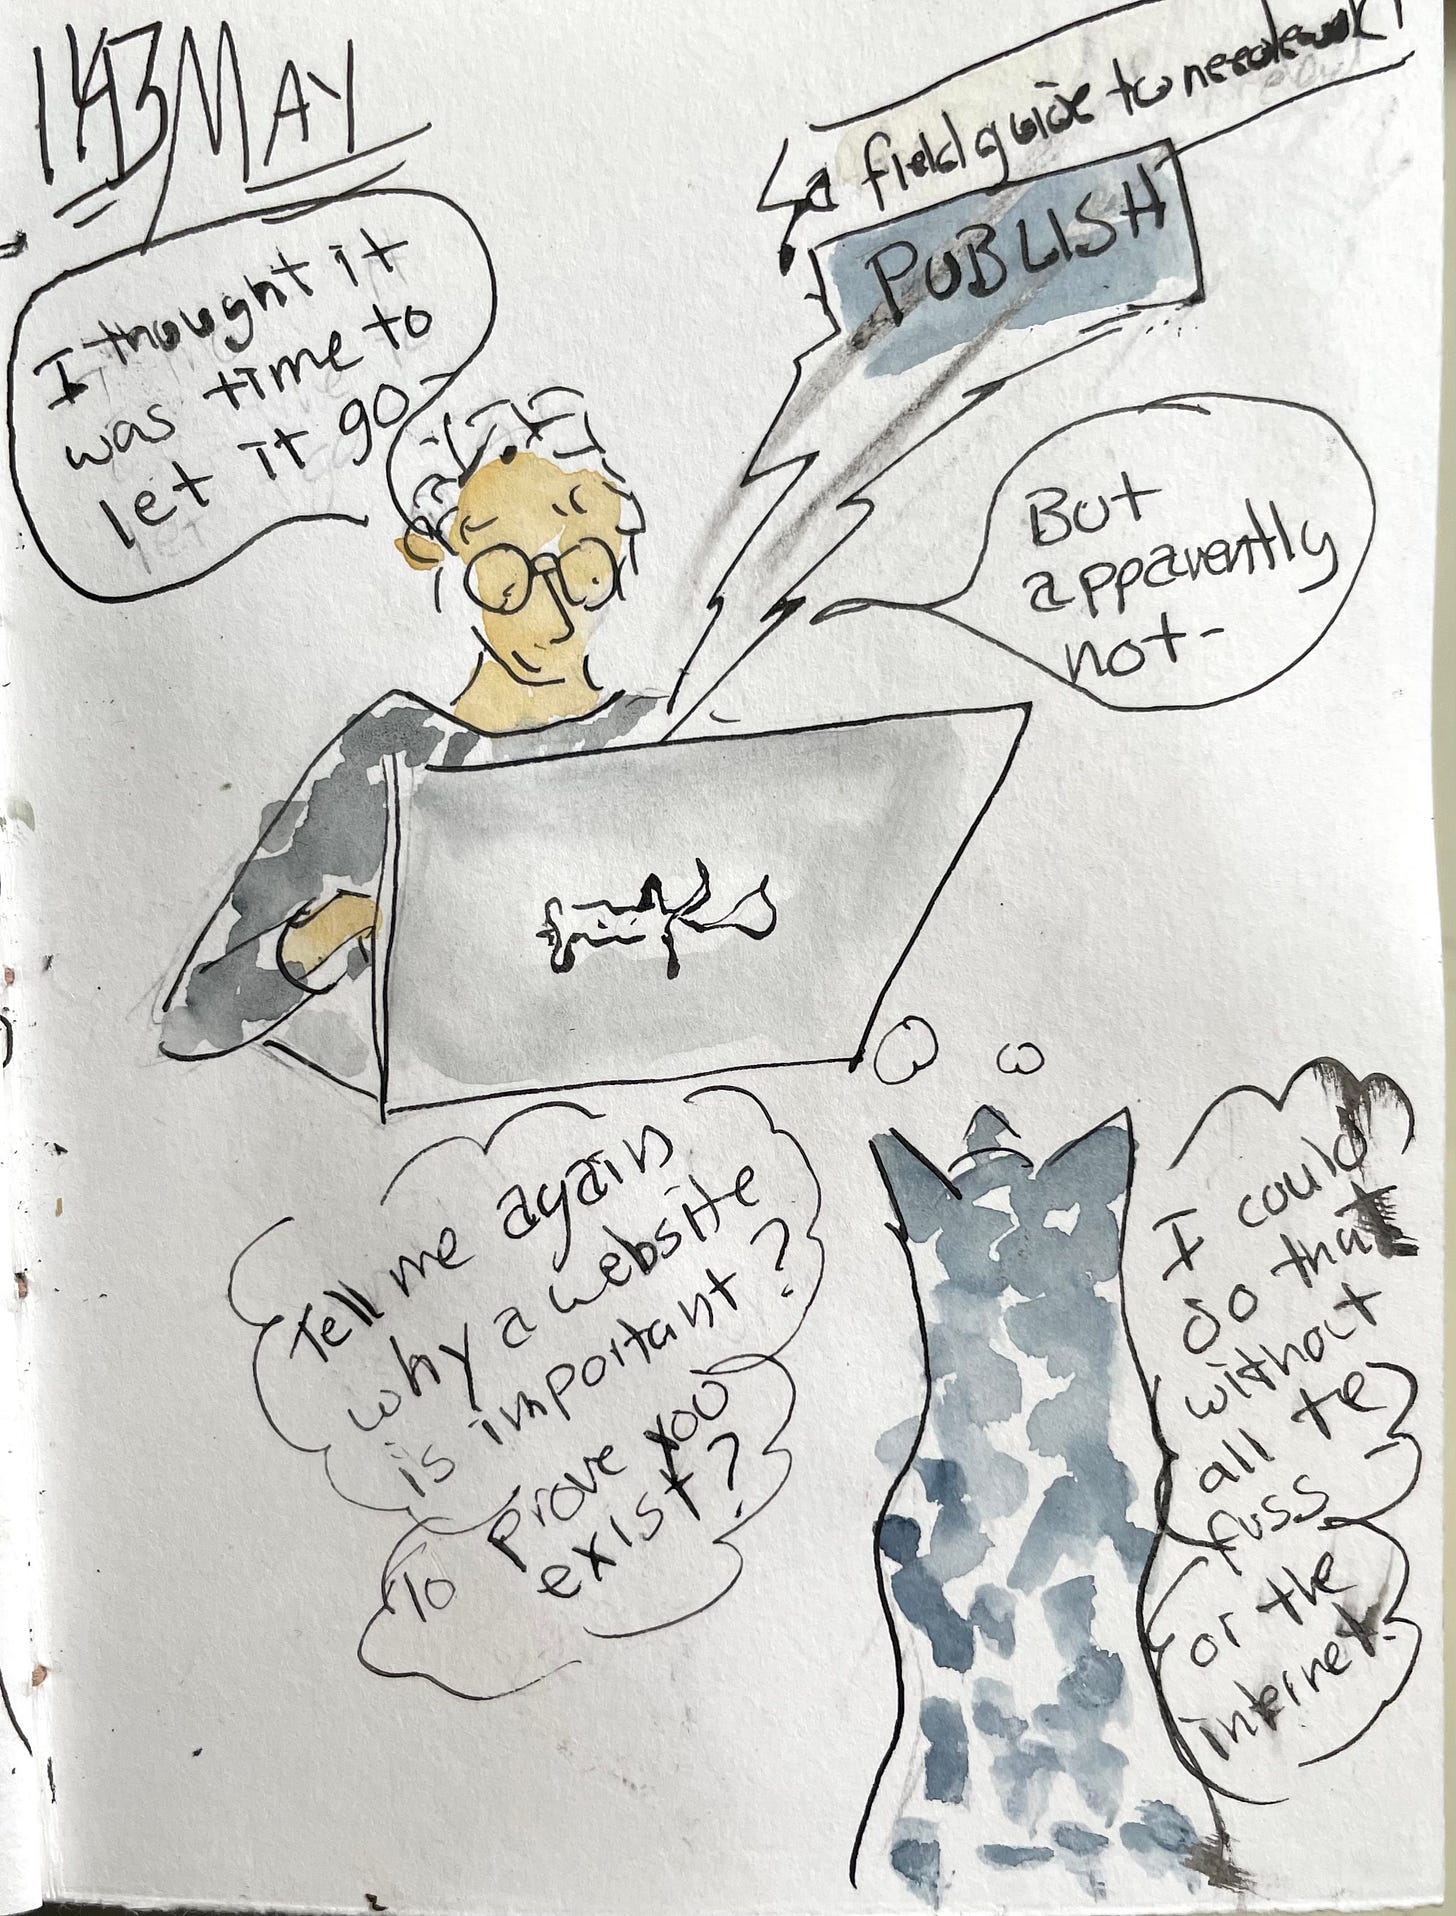 MAY
I thought it
was time to
let it go
a field guide to needlework!
PUBLISH
But
apparently
not-
Tell me again
why a website
is important?
To prove you
exist?
I could
do that
without
all the
fuss
or the
internet.